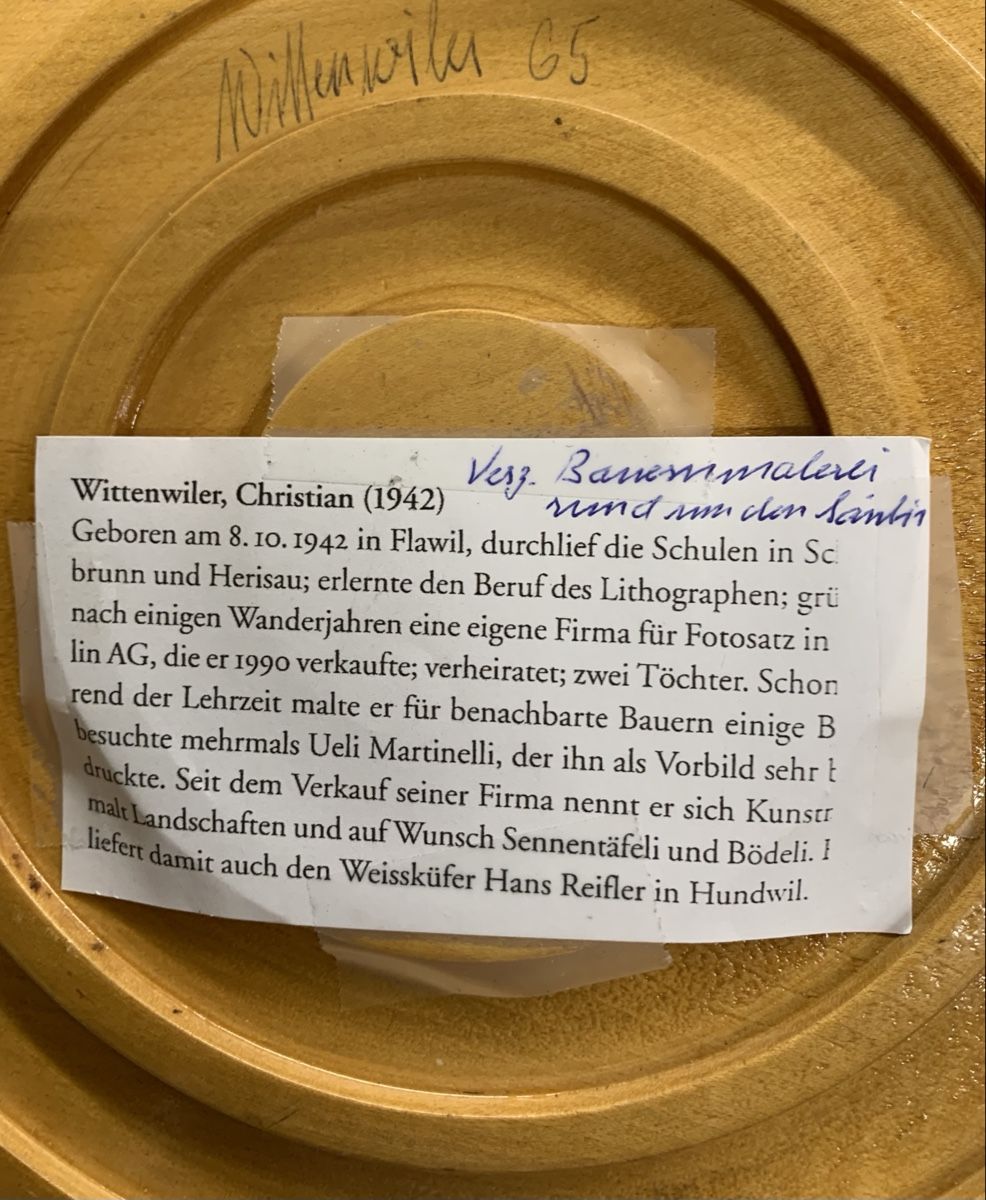 Wittenwiler 65
Verz. Bauernmalerei
rund um den Säntis
Wittenwiler, Christian (1942)
Geboren am 8. 10. 1942 in Flawil, durchlief die Schulen in Sc
brunn und Herisau; erlernte den Beruf des Lithographen; grü
nach einigen Wanderjahren eine eigene Firma für Fotosatz in
lin AG, die er 1990 verkaufte; verheiratet; zwei Töchter. Schon
rend der Lehrzeit malte er für benachbarte Bauern einige B
besuchte mehrmals Ueli Martinelli, der ihn als Vorbild sehr b
druckte. Seit dem Verkauf seiner Firma nennt er sich Kunst
malt Landschaften und auf Wunsch Sennentäfeli und Bödeli.
liefert damit auch den Weissküfer Hans Reifler in Hundwil.